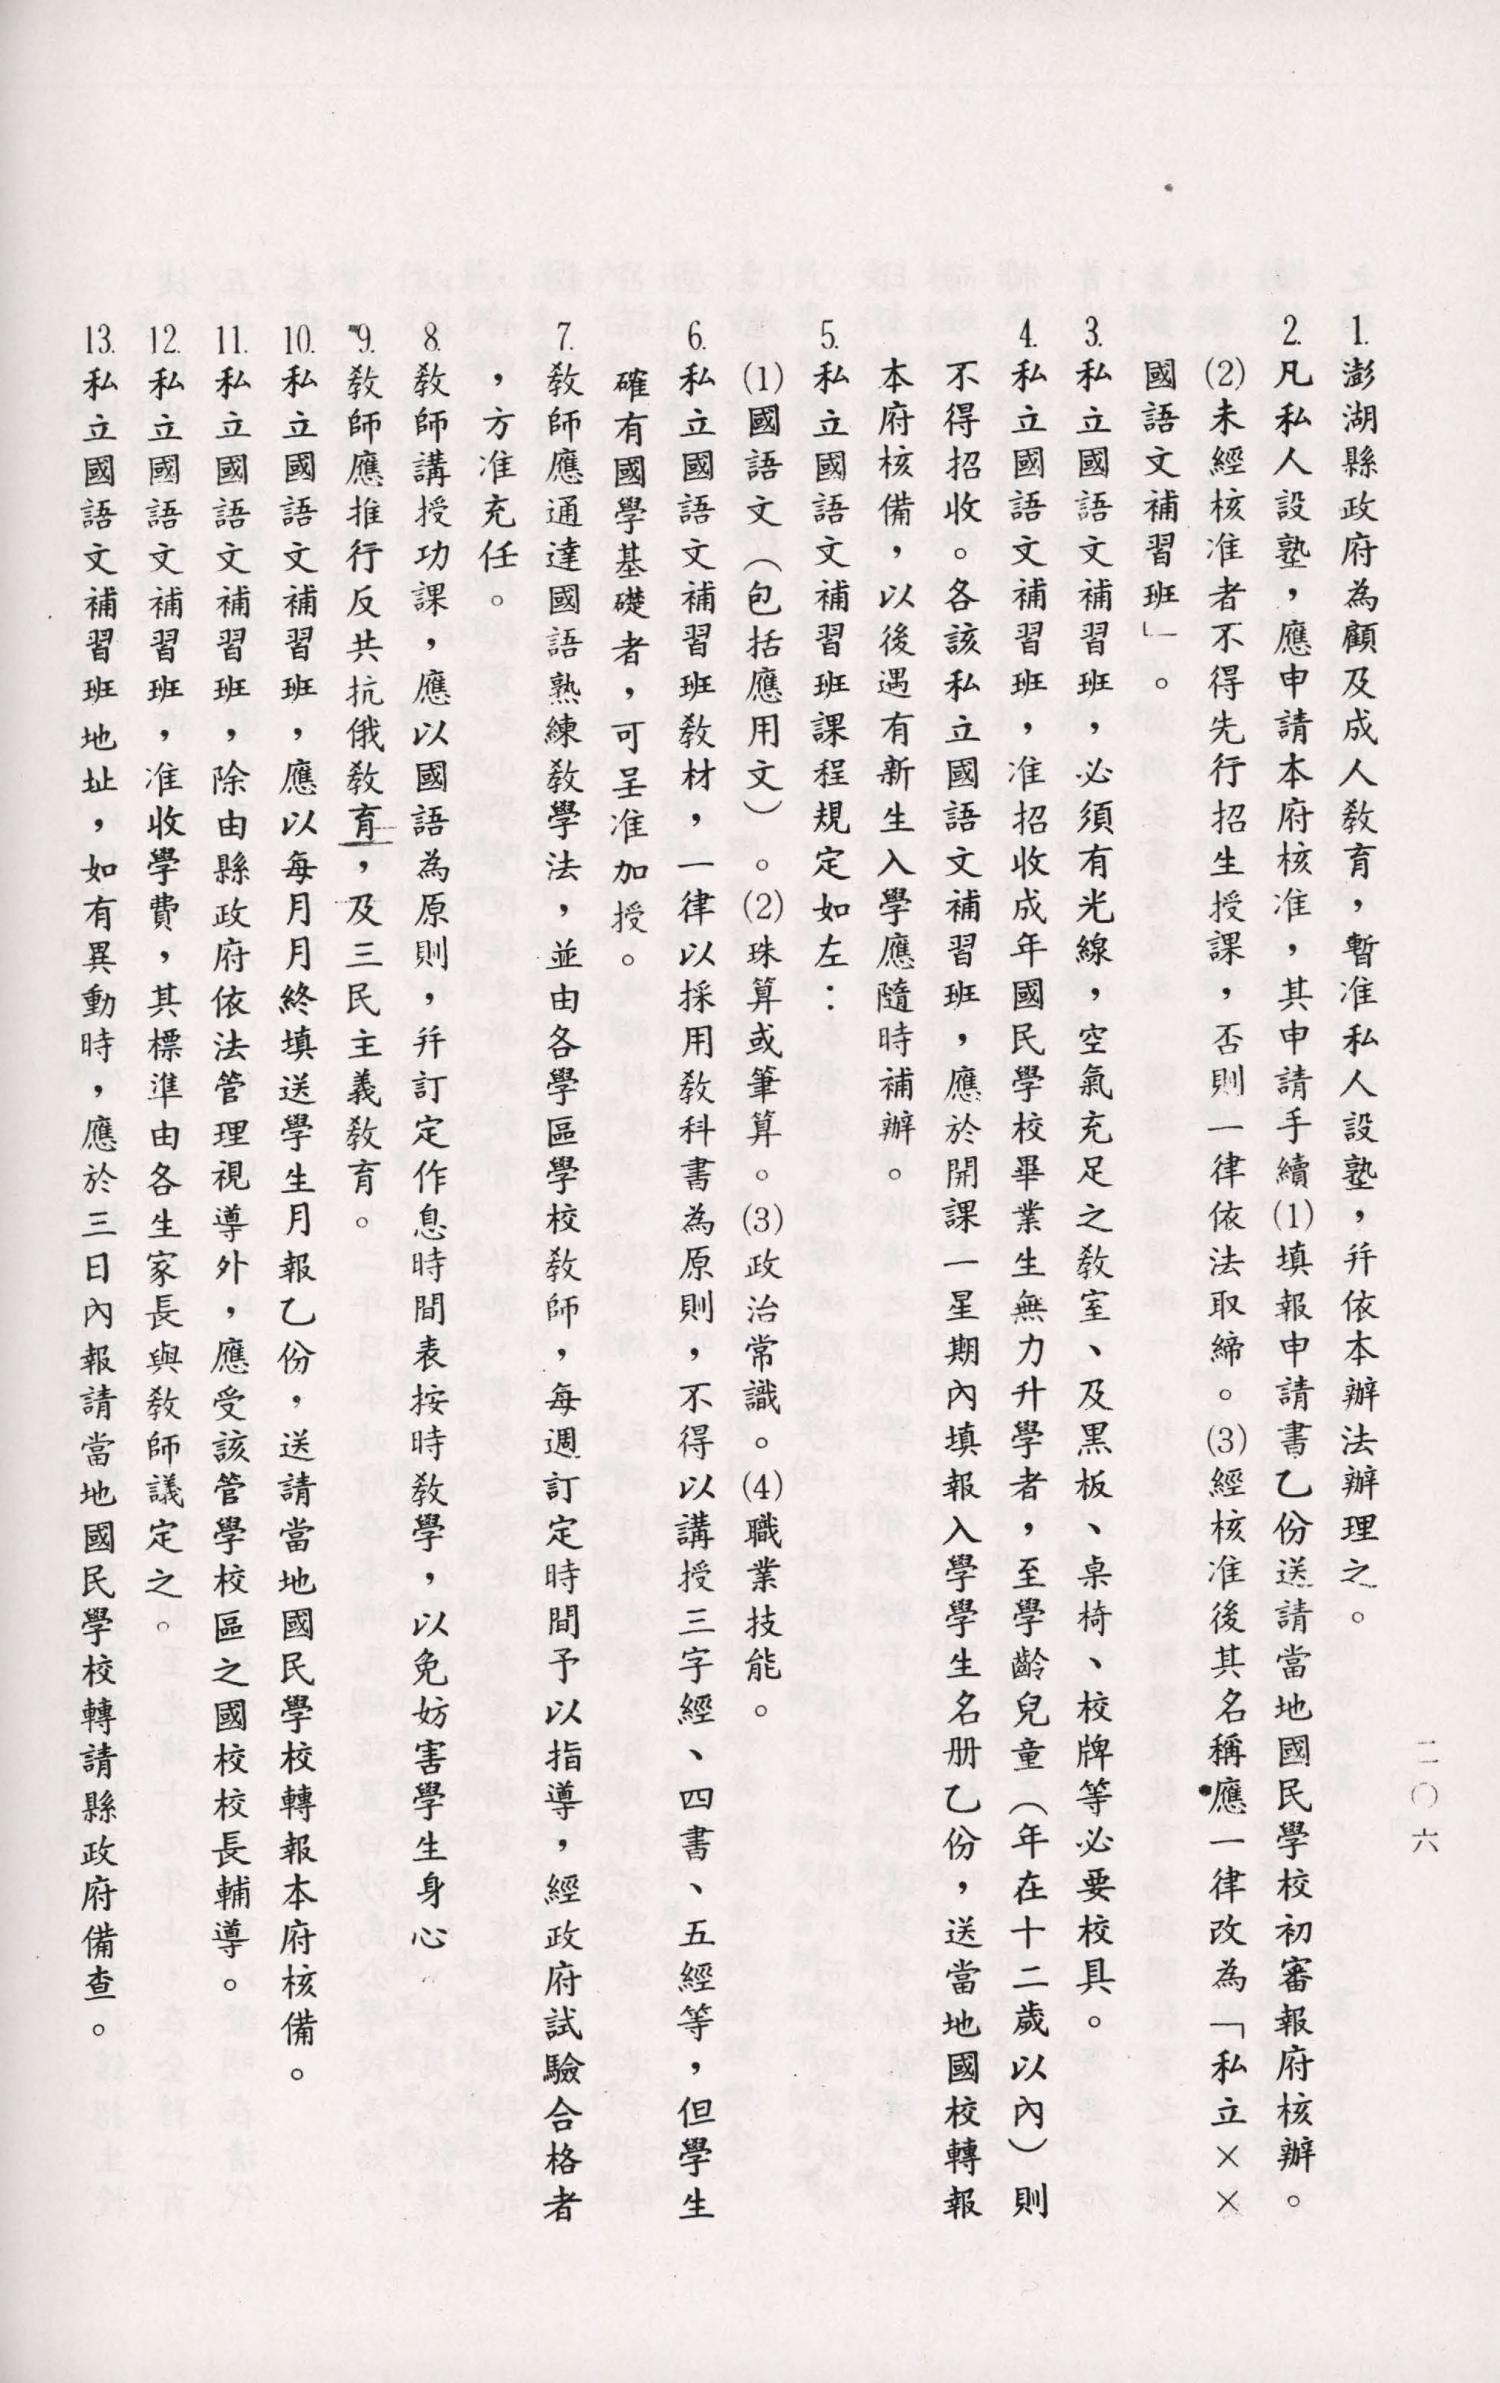 二〇六
1.澎湖縣政府為顧及成人教育，暫准私人設塾，幷依本辦法辦理之。
2.凡私人設塾，應申請本府核准，其申請手續(1)填報申請書乙份送請當地國民學校初審報府核辦。
(2)未經核准者不得先行招生授課，否則一律依法取締。(3)經核准後其名稱應一律改為「私立××
國語文補習班」。
3.私立國語文補習班，必須有光線，空氣充足之教室、及黑板、桌椅、校牌等必要校具。
4.私立國語文補習班，准招收成年國民學校畢業生無力升學者，至學齡兒童（年在十二歲以內）則
不得招收。各該私立國語文補習班，應於開課一星期內填報入學學生名册乙份，送當地國校轉報
本府核備，以後遇有新生入學應隨時補辦。
5.私立國語文補習班課程規定如左：
(1)國語文（包括應用文）。(2)珠算或筆算。(3)政治常識。(4)職業技能。
6.私立國語文補習班教材，一律以採用教科書為原則，不得以講授三字經、四書、五經等，但學生
確有國學基礎者，可呈准加授。
7.教師應通達國語熟練教學法，並由各學區學校教師，每週訂定時間予以指導，經政府試驗合格者
，方准充任。
8.教師講授功課，應以國語為原則，幷訂定作息時間表按時教學，以免妨害學生身心
9.教師應推行反共抗俄教育，及三民主義教育。
10.私立國語文補習班，應以每月月終填送學生月報乙份，送請當地國民學校轉報本府核備。
11.私立國語文補習班，除由縣政府依法管理視導外，應受該管學校區之國校校長輔導。
12.私立國語文補習班，准收學費，其標準由各生家長與教師議定之。
13.私立國語文補習班地址，如有異動時，應於三日內報請當地國民學校轉請縣政府備查。